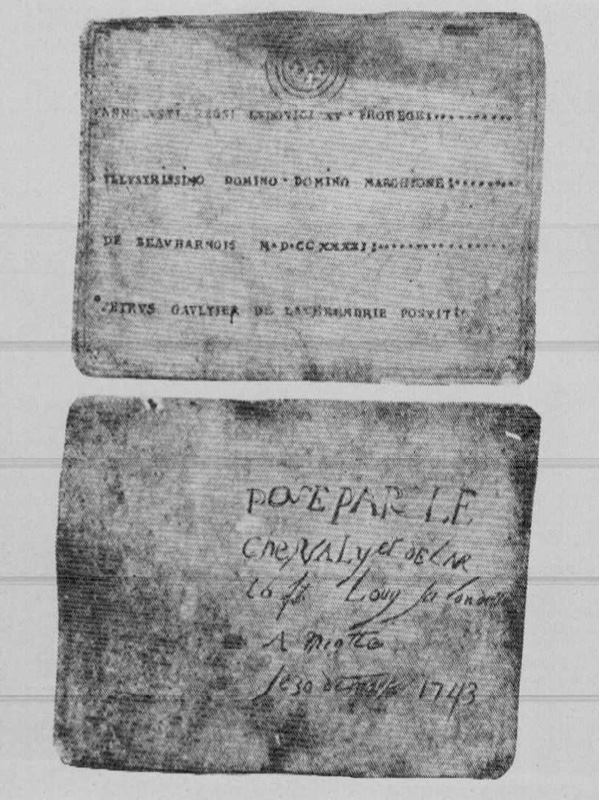 ANNO REGNI LVDOVICI XV PROREGE
ILLVSTRISSIMO DOMINO DOMINO MARCHIONE
DE BEAVHARNOIS M D CC XXXXI
PETRVS GAVLTIER DE LAVERENDRIE POSVIT
POSE PAR LE
CheVALyet DE LAR
Louy la Londette
A Miotte
le 30 de mars 1743